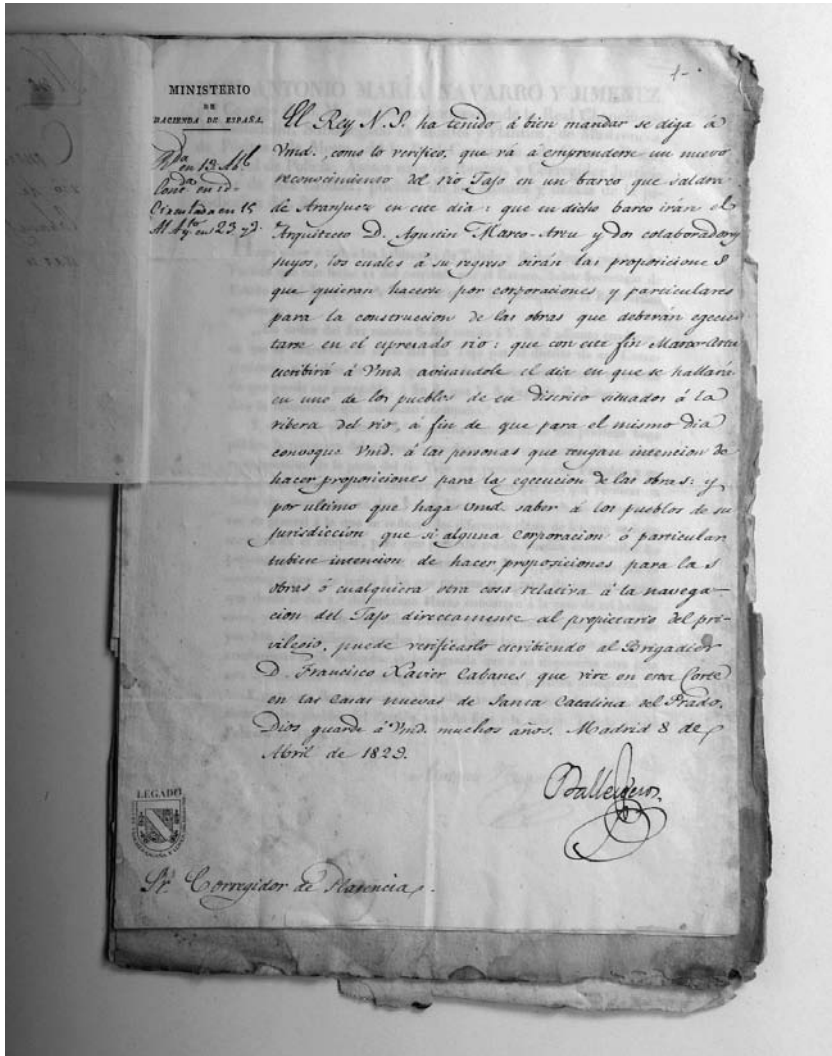 1-
MINISTERIO
DE
HACIENDA DE ESPAÑA.
en 13 Abl
Contda en id-
Circulada en 15
Al Ayto en 23. yd.
El Rey N. S. ha tenido á bien mandar se diga á
Vmd., como lo verifico, que vá á emprenderse un nuevo
reconocimiento del rio Tajo en un barco que saldra
de Aranjuez en este dia: que en dicho barco irán el
Arquitecto D. Agustin Marco-Artu y dos colaboradores
suyos, los cuales á su regreso oirán las proposiciones
que quieran hacerse por corporaciones y particulares
para la construccion de las obras que deberán egecu-
tarse en el espresado rio: que con este fin Marco-Artu
escribirá á Vmd. avisandole el dia en que se hallará
en uno de los pueblos de su Discrito situados á la
ribera del rio, á fin de que para el mismo dia
convoque Vmd. á las personas que tengan intencion de
hacer proposiciones para la egecucion de las obras: y
por ultimo que haga Vmd. saber á los pueblos de su
jurisdiccion que si alguna corporacion ó particular
tubiere intencion de hacer proposiciones para las
obras ó cualquiera otra cosa relativa á la navega-
cion del Tajo directamente al propietario del pri-
vilegio, puede verificarlo escribiendo al Brigadier
D. Francisco Xavier Cabanes que vive en esta Corte
en las Casas nuevas de Santa Catalina del Prado.
Dios guarde á Vmd. muchos años. Madrid 8 de
Abril de 1829.
Ballesteros
LEGADO
Sr. Corregidor de Plasencia.